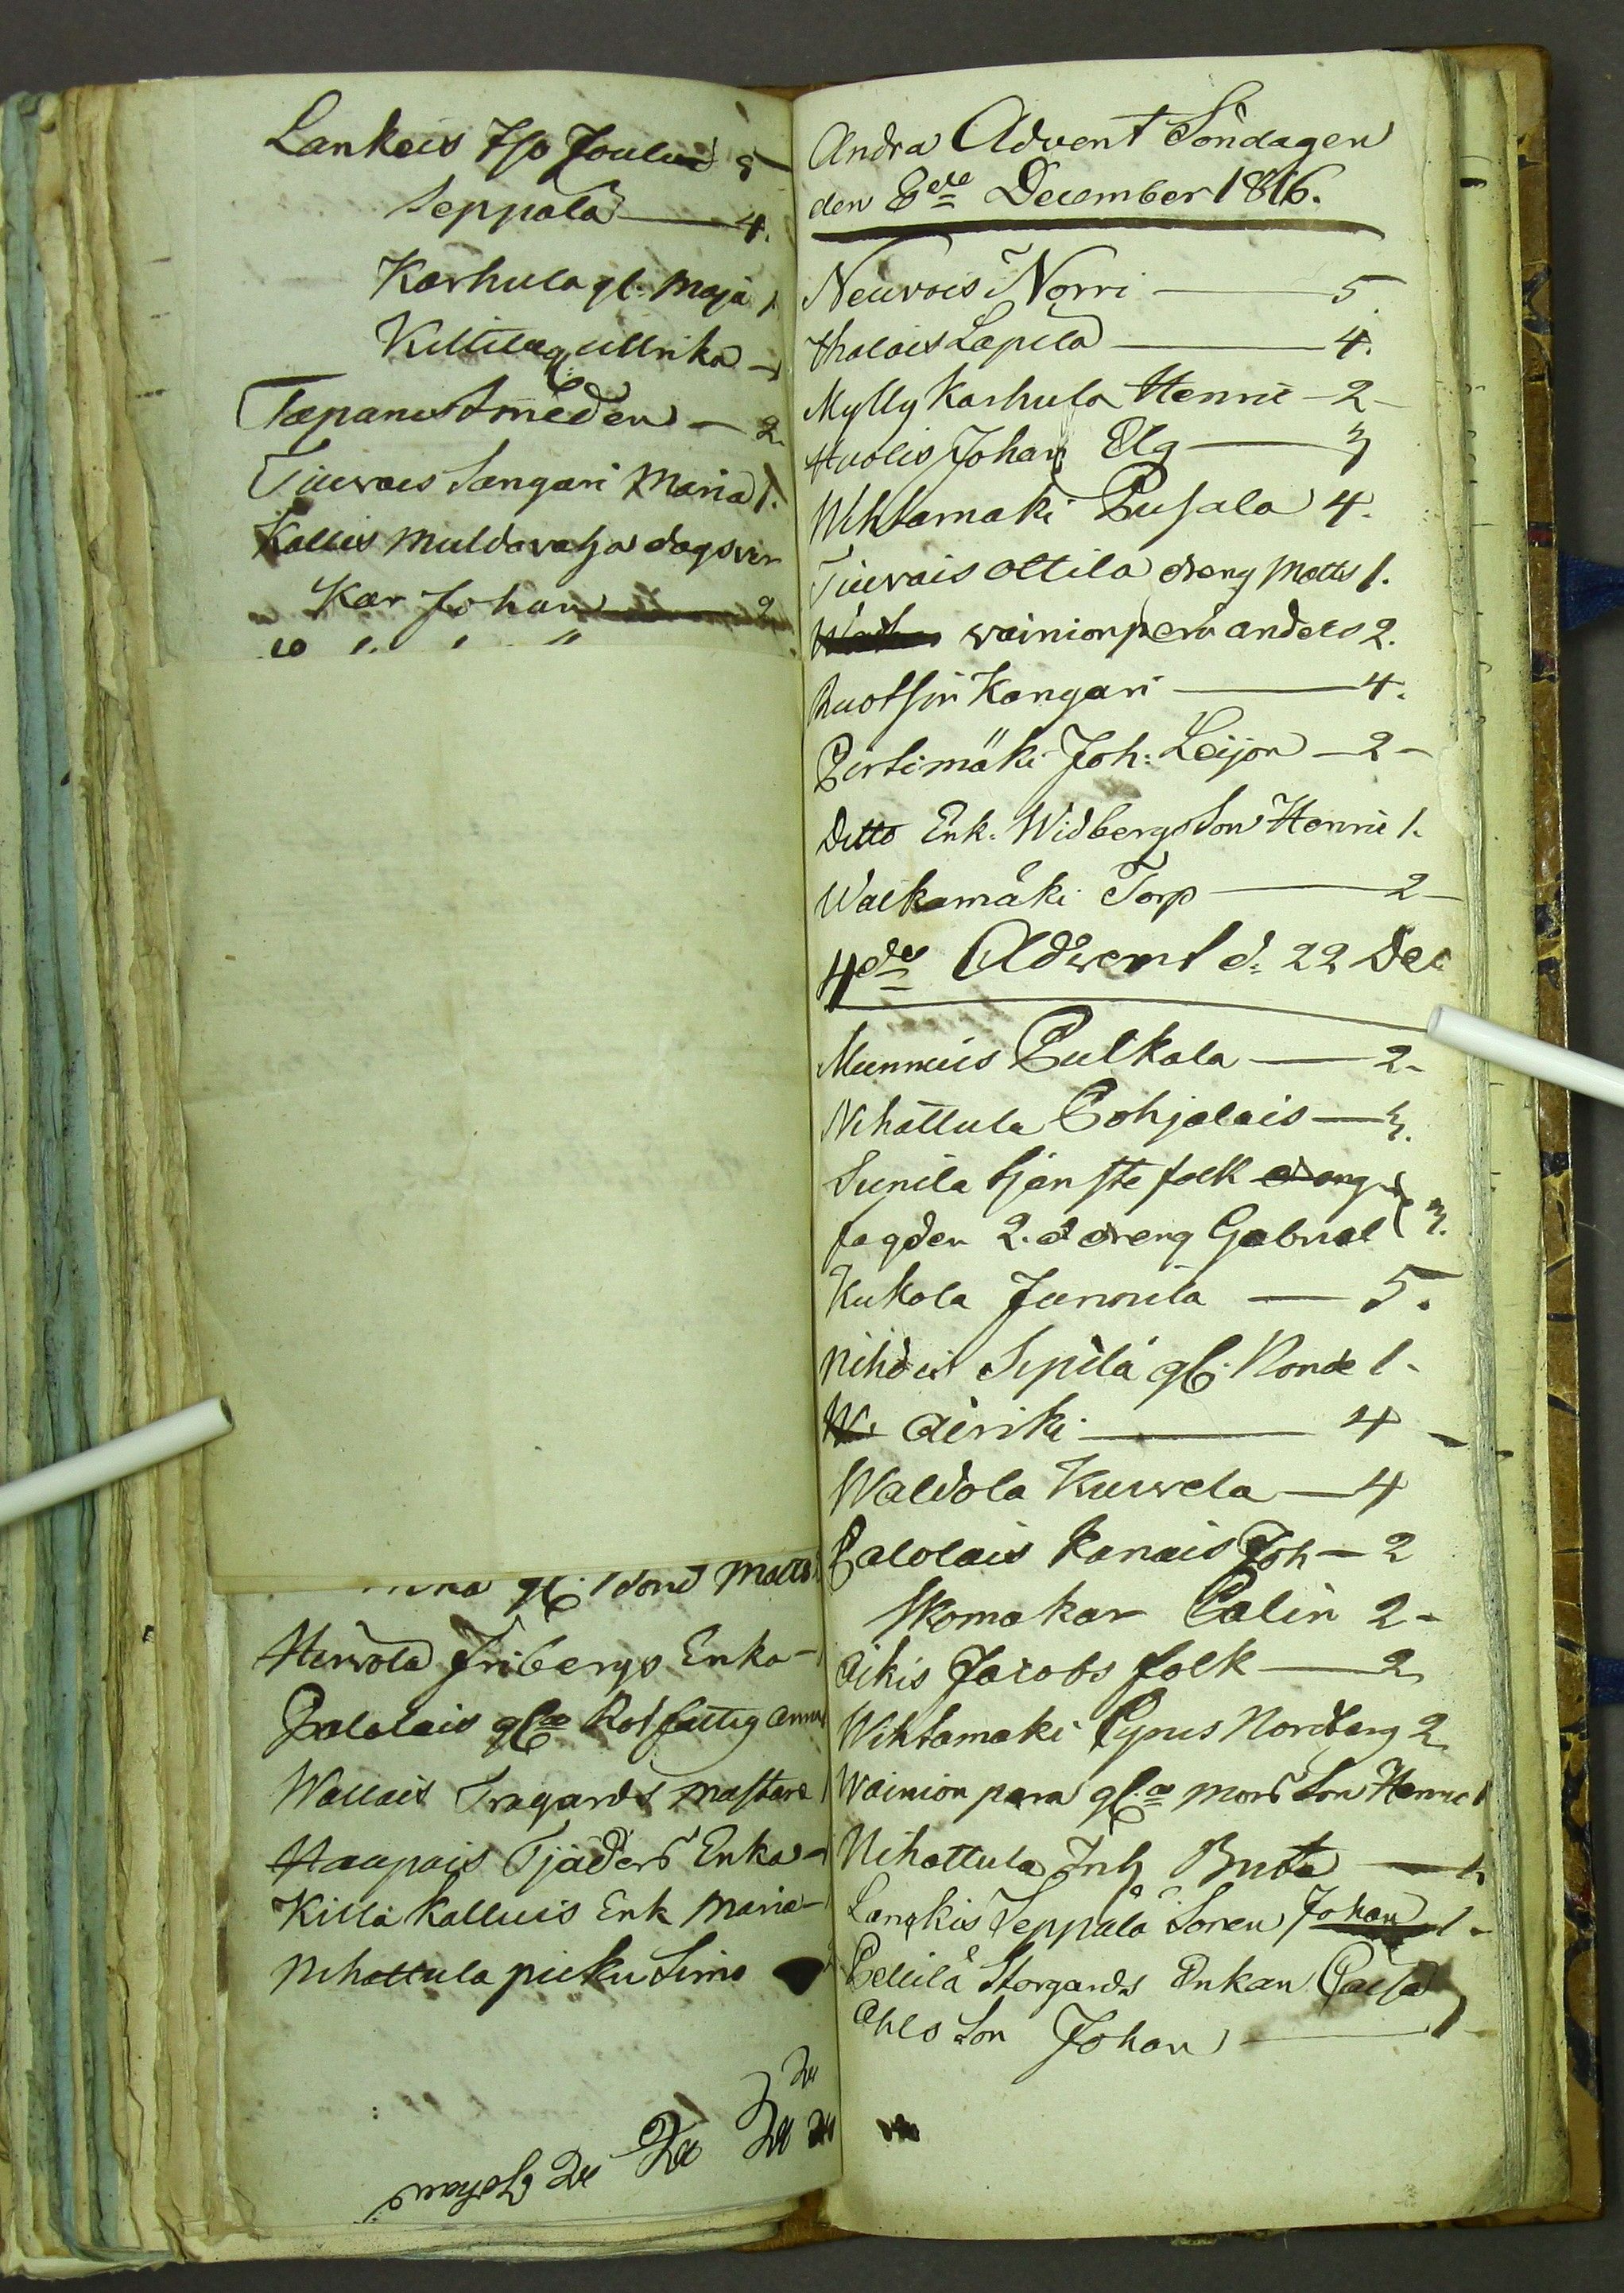 Lankeis Iso Jouluis 3
Seppälä 4.
Karhula gl. Maja 1.
Kittilæ ullrika
Tæpanes Smeden 2.
Tiuvais Sangari Maria 1.
Kallis Muldavahja dagsver
Kar Johan 2
Hirvola Fribergs Enka
Palolais gl:a Rotfattig anna
Wallais Tragards Mastare
Haapais Tjäders Enka
Killä Kalluis Enk Maria
Nihattula piiku Simo
Johan
Andra Advent Söndagen
den 8de December 1816.
Neuvois Norri 5.
Halais Lapila 4.
Mylly Karhula Henric 2
Huolis Johan Elg 3
Wihtamaki Pusala 4.
Tiuvais Ottila dreng Matts 1.
wainionperä anders 2.
Ruotsin Kangari 4.
Pirtimäki Joh: Leijon 2
Ditto Enk. Widbergs Son Henric 1.
Walkamäki Torp 2
4de Adwent d: 22 Dec
Munnuis Pulkala 2
Nihattula Pohjalais 3.
Sunila tjenstefolk dreng
fogden 2. dreng Gabriel 3.
Kukola Junnila 5.
Nihois Sipilä gl: Norde 1
Airiki 4
Waldola Kuvvela 4
Palolais Kanais Joh 2
Skomakar Palin 2
Aikis Jacobs folk 2
Wihtamaki Pyrus Nordberg 2
Wainion para gl:a mors Son Henric 1
Nihattula Inh Brita 1.
Lankis Seppälä Sonen Johan 1
Pellilä Storgards Enkan Caisa
Ahls Son Johan 1